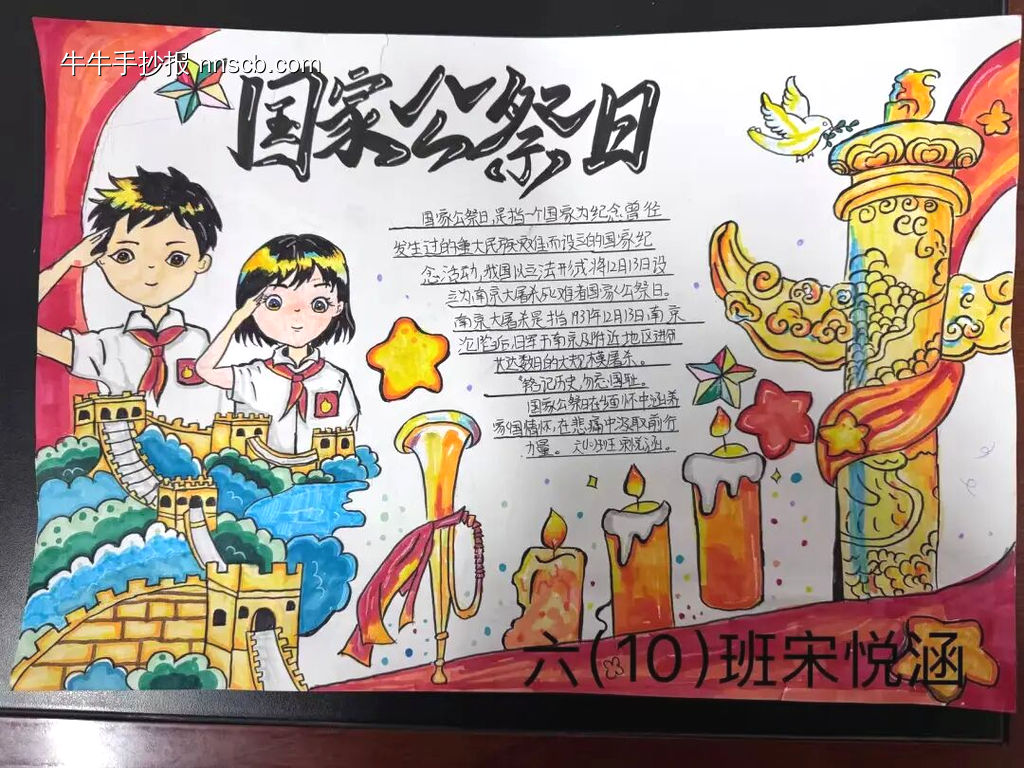 牛牛手抄报 nnscb.com
国家公祭日
国家公祭日,是指一个国家为纪念曾经
发生过的重大民族灾难而设立的国家纪
念活动,我国以立法形式将12月13日设
立为南京大屠杀死难者国家公祭日。
南京大屠杀是指1937年12月13日,南京
沦陷后,日军于南京及附近地区进行
长达数月的大规模屠杀。
铭记历史,勿忘国耻。
国家公祭日在缅怀中涵养
家国情怀,在悲痛中汲取前行
力量。 六(10)班 宋悦涵。
六(10)班宋悦涵